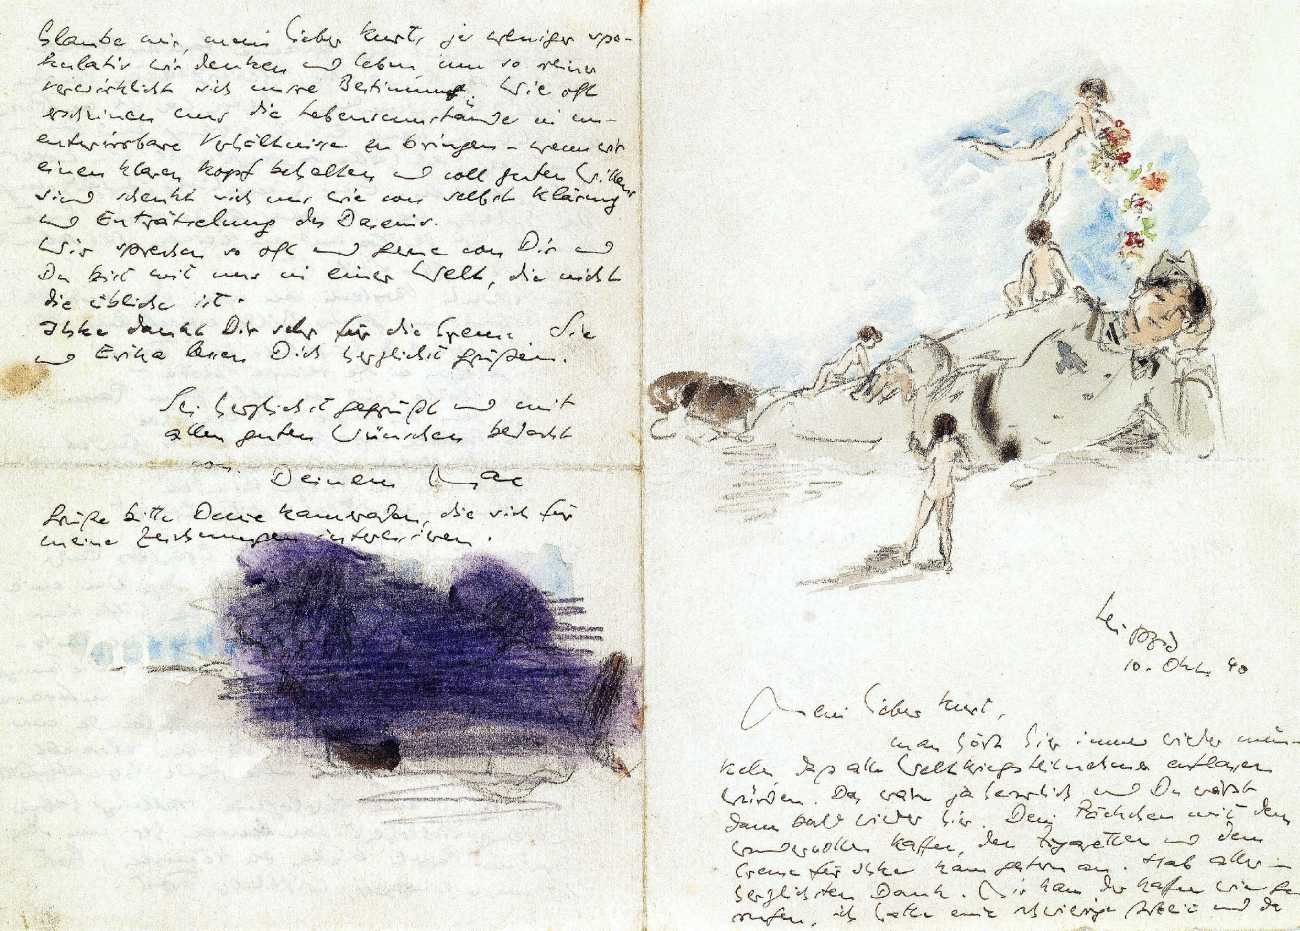 Glaube mir, mein lieber Kurt, je weniger spe-
kulativ wir denken und leben um so reiner
verwirklicht sich unsre Bestimmung. Wie oft
erscheinen uns die Lebensumstände in un-
entwirrbare Verhältnisse zu bringen – wenn wir
einen klaren Kopf behalten und voll guten Willens
sind schenkt sich uns wie von selbst Klärung
und Enträtselung des Daseins.
Wir sprechen so oft und gerne von Dir und
Du bist mit uns in einer Welt, die nicht
die übliche ist.
dankt Dir sehr für die Creme. Sie
und Erika lassen Dich herzlichst grüßen.
Sei herzlichst gegrüßt und mit
allen guten Wünschen bedacht
von
Deinem Mac
Grüße bitte Deine Kameraden, die sich für
meine Zeichnungen interessieren.
Leipzig
10. Okt. 40
Mein lieber Kurt,
man hört hier immer wieder mun-
keln, daß alle Weltkriegsteilnehmer entlassen
würden. Das wäre ja herrlich und Du wärst
dann bald wieder hier. Dein Päckchen mit dem
wundervollen Kaffee, den Zigaretten und dem
Creme für kam gestern an. Hab aller-
herzlichsten Dank. Mir kam der Kaffee wie ge-
rufen, ich hatte eine schwierige Arbeit und da